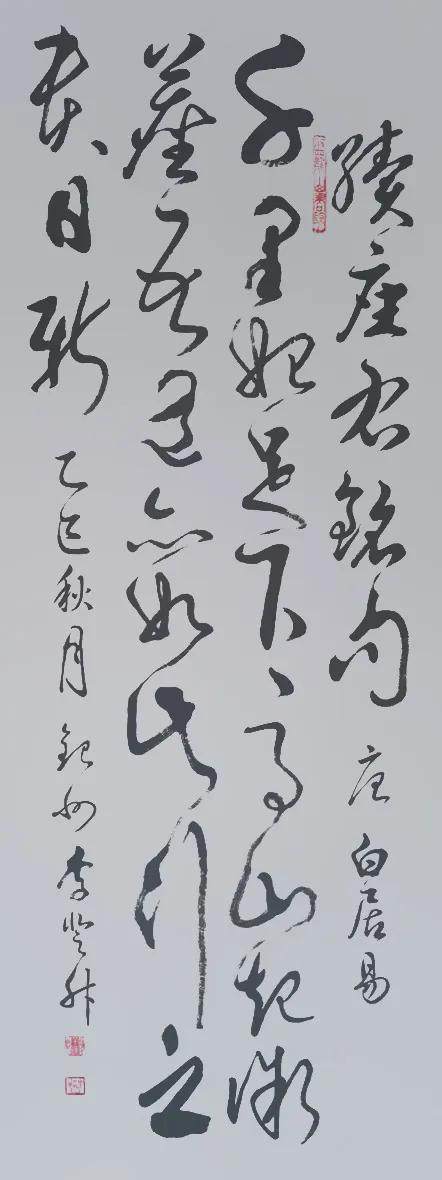 續座右銘句 唐 白居易
千里始足下高山起微
塵吾道亦如此行之
貴日新 乙巳秋月 州 李登